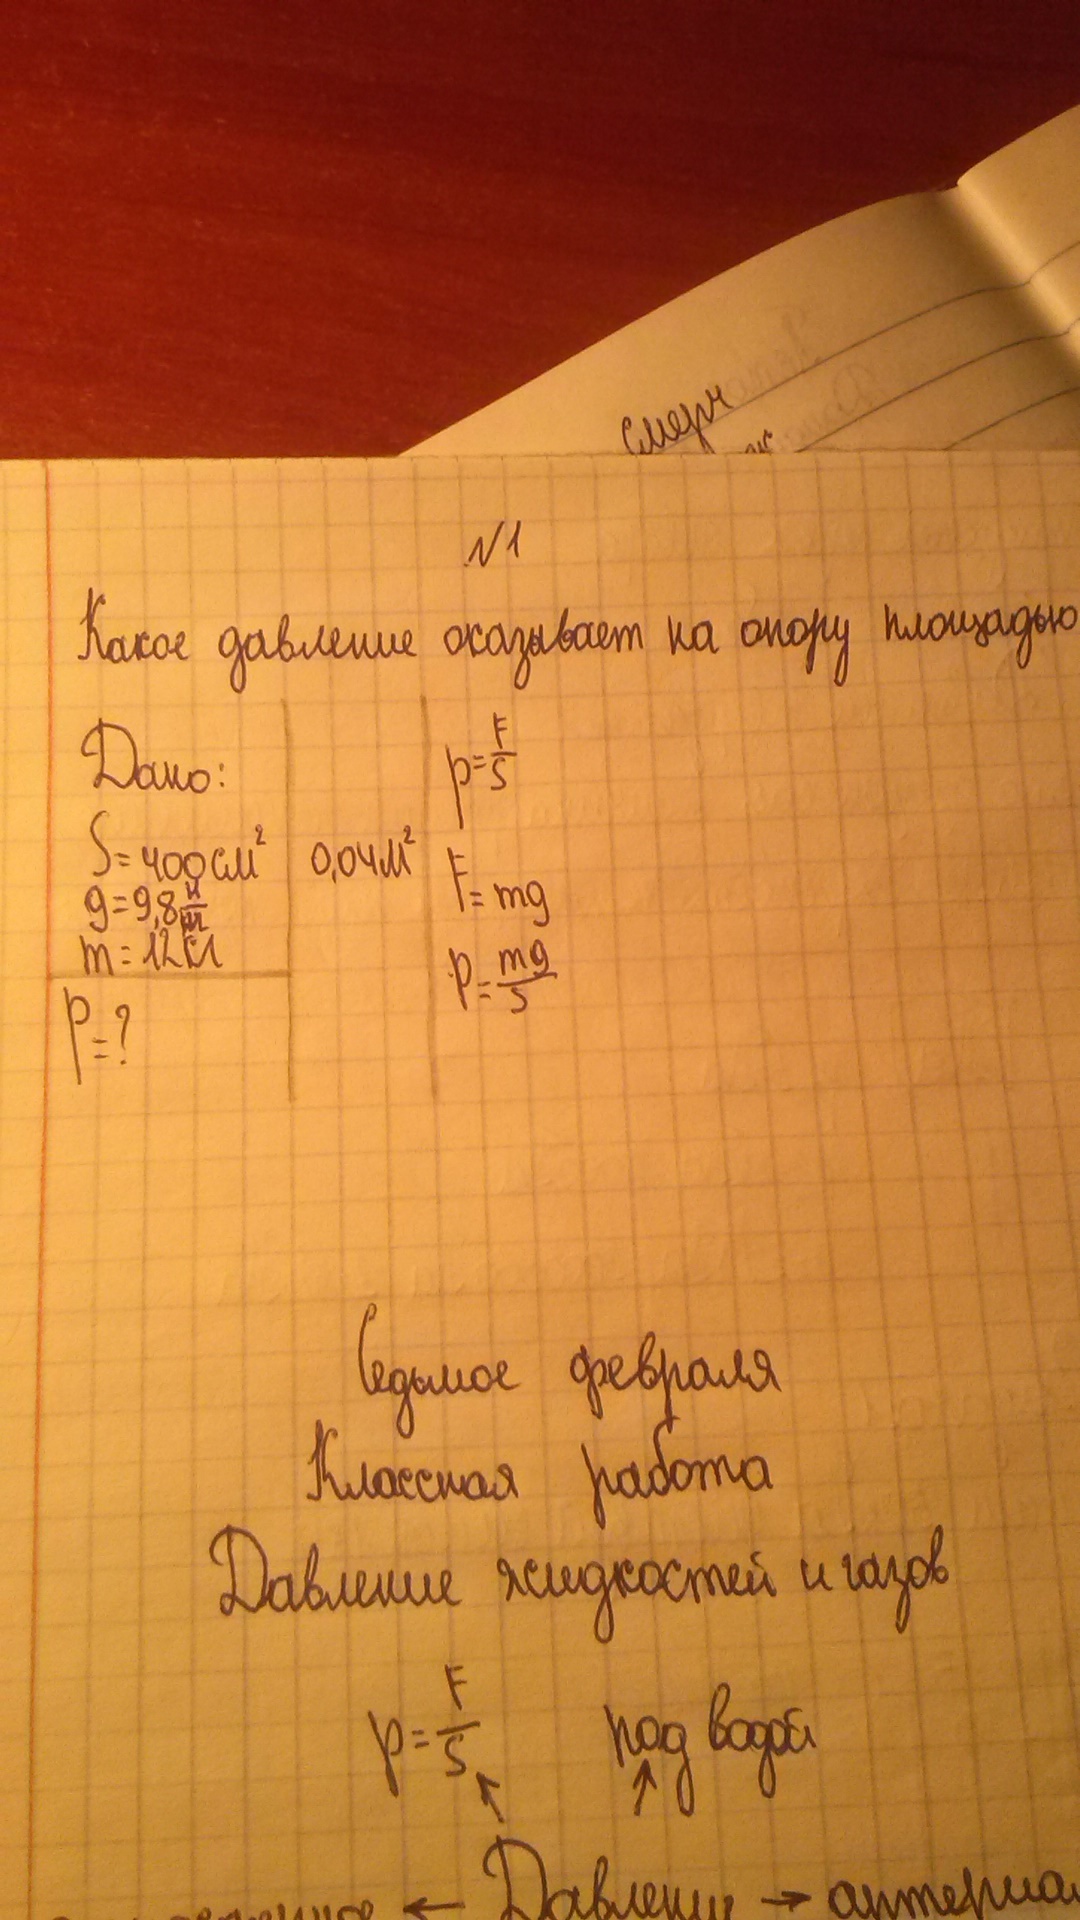 смерч
№1
Какое давление оказывает на опору площадью
Дано:
S=400см²
0,04м²
g=9,8
m=12кг
P=?
p=F/S
F=mg
P=mg/S
Седьмое февраля
Классная работа
Давление жидкостей и газов
p=F/S
под водой
← Давление →